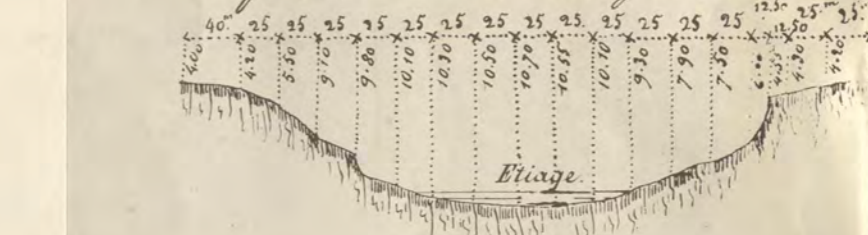 40.ᵐ 25 25 25 25 25 25 25 25 25. 25 25 25 25 12.50 12.50 25.ᵐ 25.
4.00 4.20 5.50 9.10 9.80 10.10 10.30 10.50 10.70 10.55 10.10 9.30 7.90 7.50 6.00 4.30 4.20
Etiage.